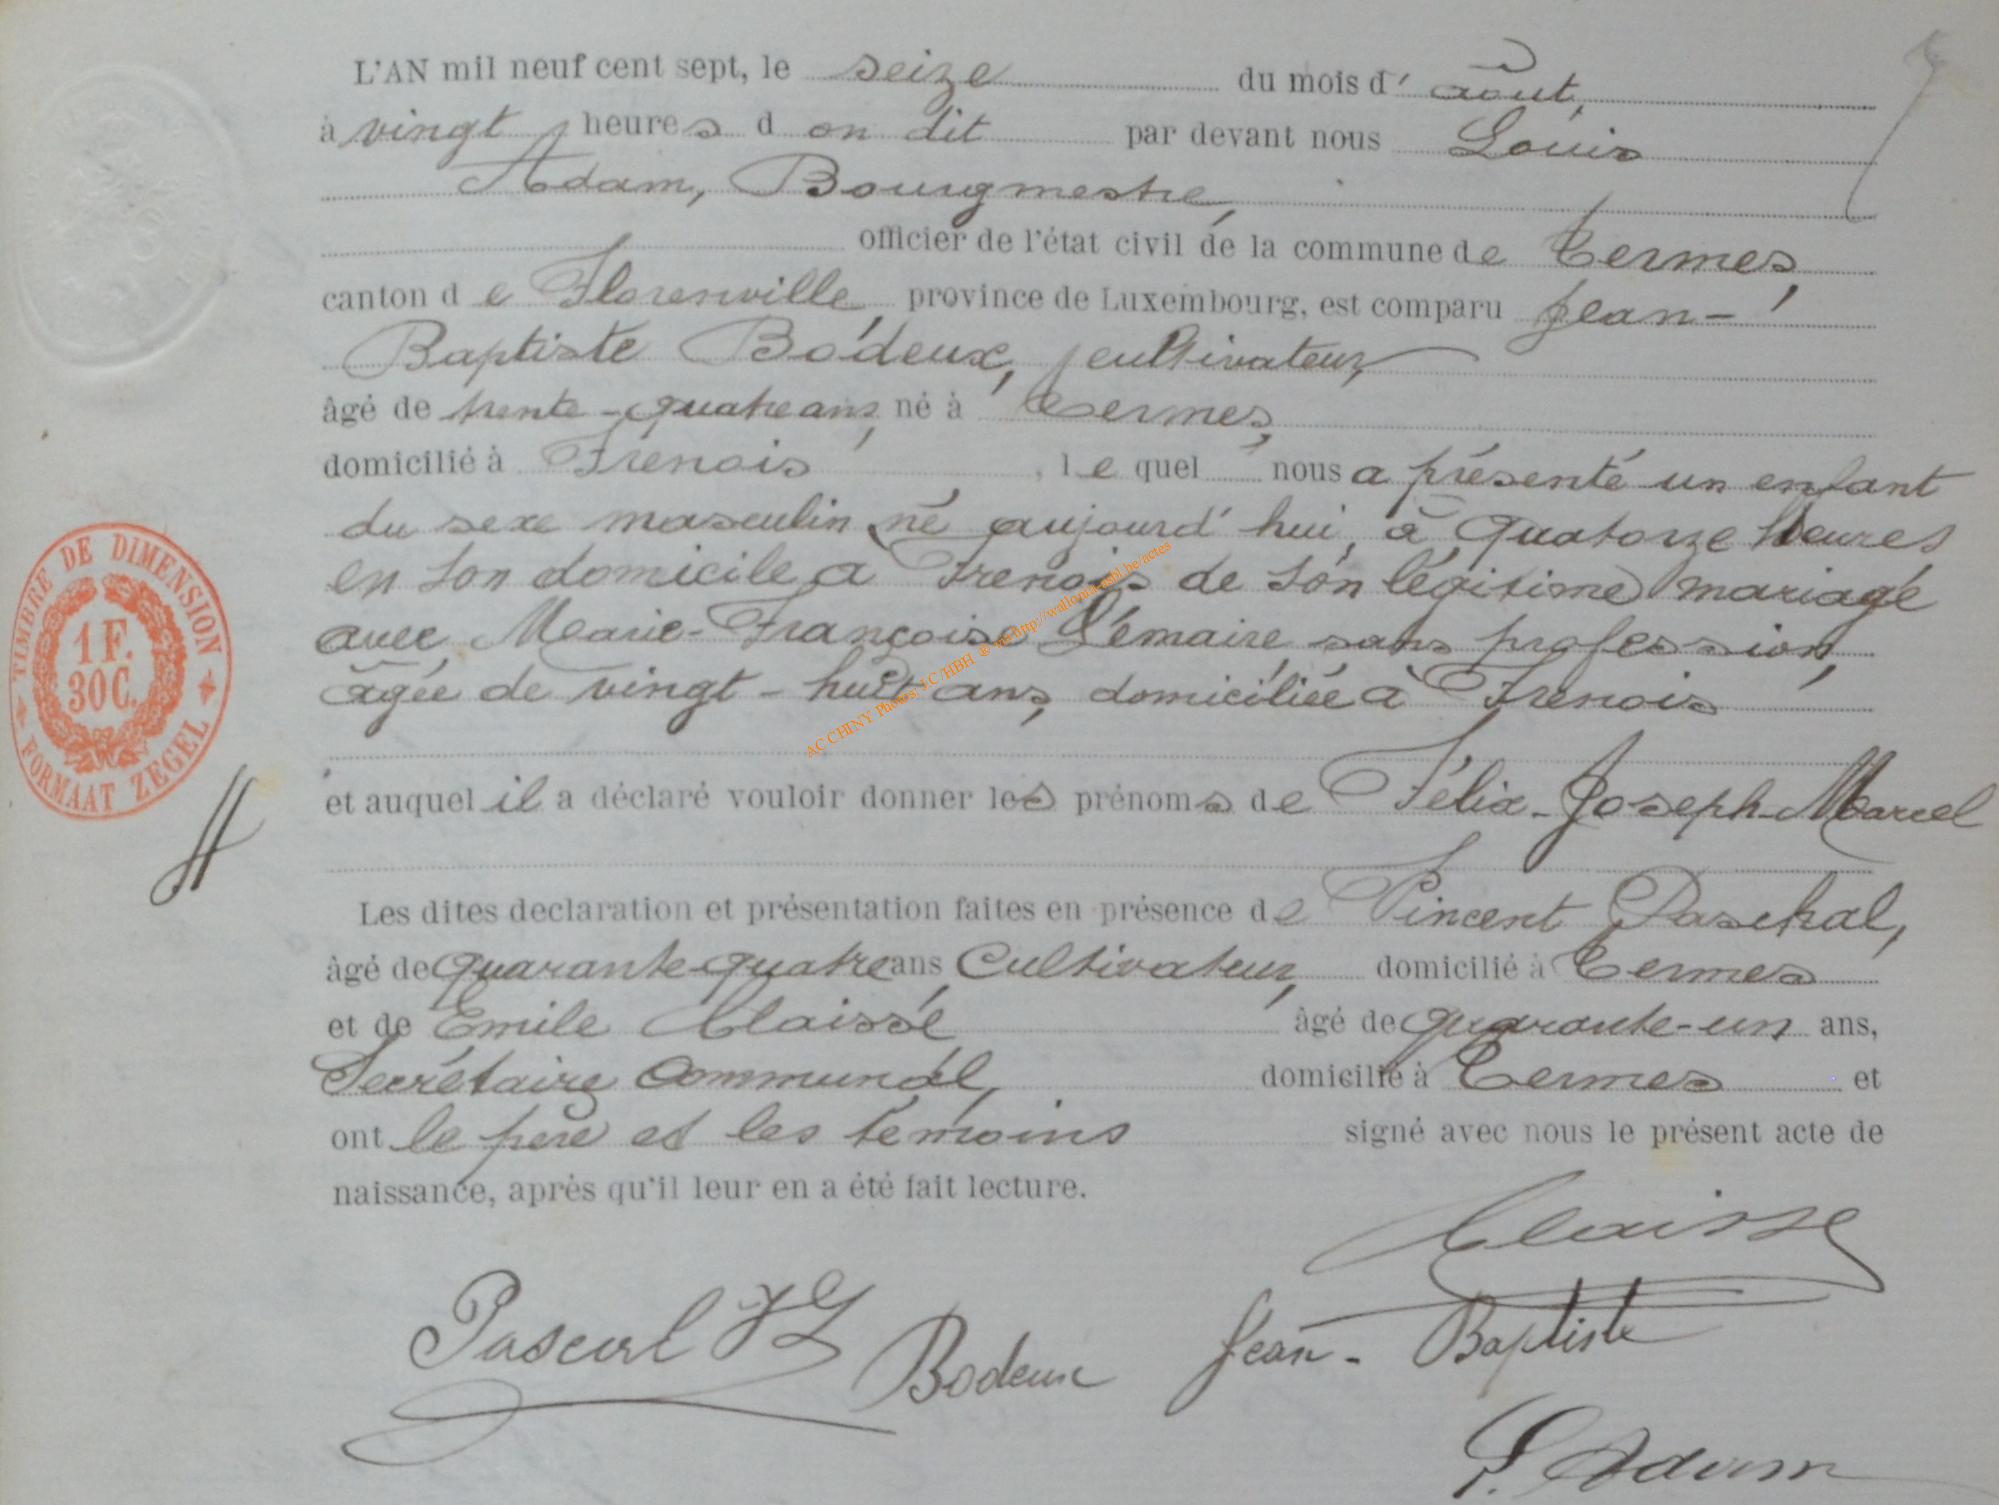 L'AN mil neuf cent sept, le seize du mois d' août,
à vingt heures d on dit par devant nous Louis
Adam, Bourgmestre,
officier de l'état civil de la commune de Termes,
canton de Florenville, province de Luxembourg, est comparu Jean-
Baptiste Bodeux, cultivateur,
âgé de trente-quatre ans, né à Termes,
domicilié à Frenois, lequel nous a présenté un enfant
du sexe masculin né aujourd'hui, à quatorze heures
en son domicile à Frenois de son légitime mariage
avec Marie-Françoise Lémaire sans profession,
âgée de vingt-huit ans, domiciliée à Frenois
et auquel il a déclaré vouloir donner les prénoms de Félix-Joseph-Marcel
Les dites declaration et présentation faites en présence de Vincent Paschal,
âgé de quarante-quatre ans, Cultivateur, domicilié à Termes
et de Emile Claisse âgé de quarante-un ans,
Secrétaire Communal, domicilié à Termes et
ont le père et les témoins signé avec nous le présent acte de
naissance, après qu'il leur en a été fait lecture.
Claisse
Pascal
Bodeux Jean-Baptiste
L Adam
TIMBRE DE DIMENSION
1 F.
30 C.
FORMAAT ZEGEL
AC CHINY Photos J.C/HBH © http://wallonia-asbl.be/actes